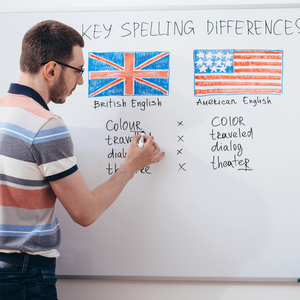 KEY SPELLING DIFFERENCES
British English American English
COLOUR × COLOR
trave × traveled
dia × dialog
th re × theater